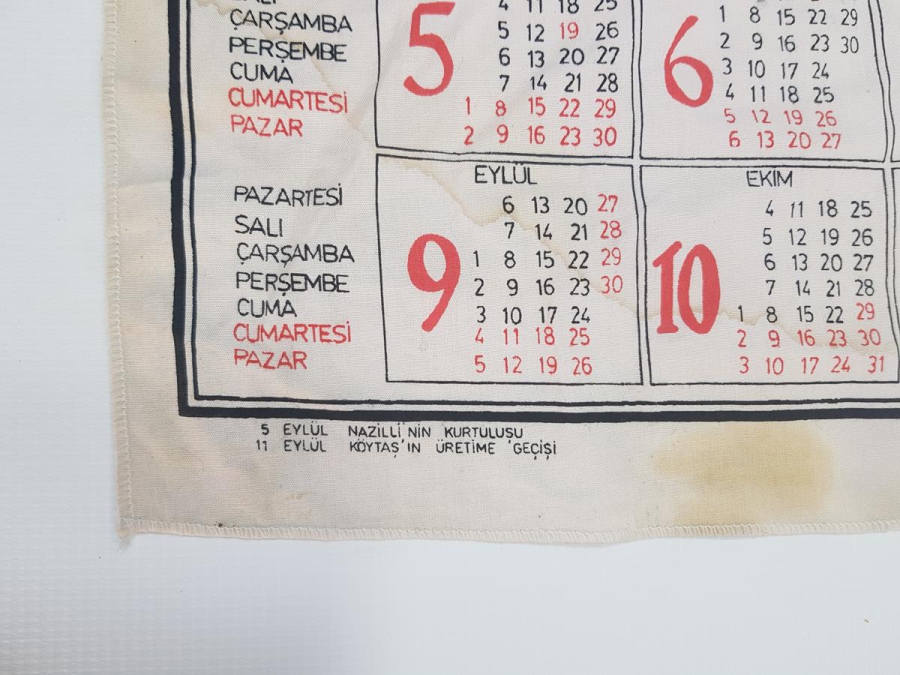 ÇARŞAMBA
PERŞEMBE
CUMA
CUMARTESİ
PAZAR
5
4 11 18 25
5 12 19 26
6 13 20 27
7 14 21 28
1 8 15 22 29
2 9 16 23 30
6
1 8 15 22 29
2 9 16 23 30
3 10 17 24
4 11 18 25
5 12 19 26
6 13 20 27
PAZARTESİ
SALI
ÇARŞAMBA
PERŞEMBE
CUMA
CUMARTESİ
PAZAR
EYLÜL
9
6 13 20 27
7 14 21 28
1 8 15 22 29
2 9 16 23 30
3 10 17 24
4 11 18 25
5 12 19 26
EKİM
10
4 11 18 25
5 12 19 26
6 13 20 27
7 14 21 28
1 8 15 22 29
2 9 16 23 30
3 10 17 24 31
5 EYLÜL NAZİLLİ'NİN KURTULUSU
11 EYLÜL KÖYTAŞ'IN ÜRETIME GEÇİŞİ